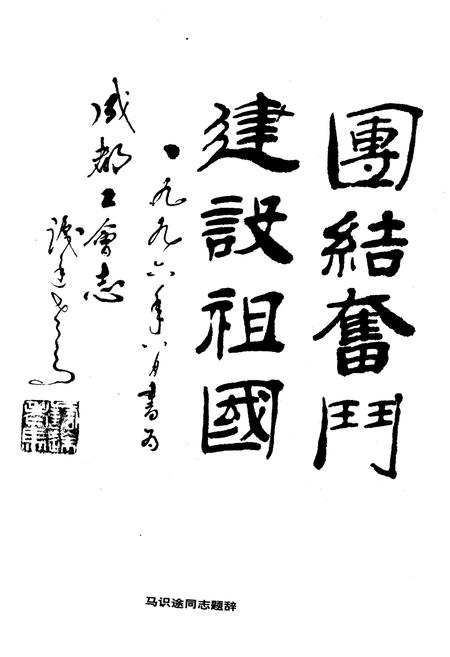 團結奮鬥
建設祖國
一九九六年八月書为
成都工會志
識途老马
马识途同志题辞